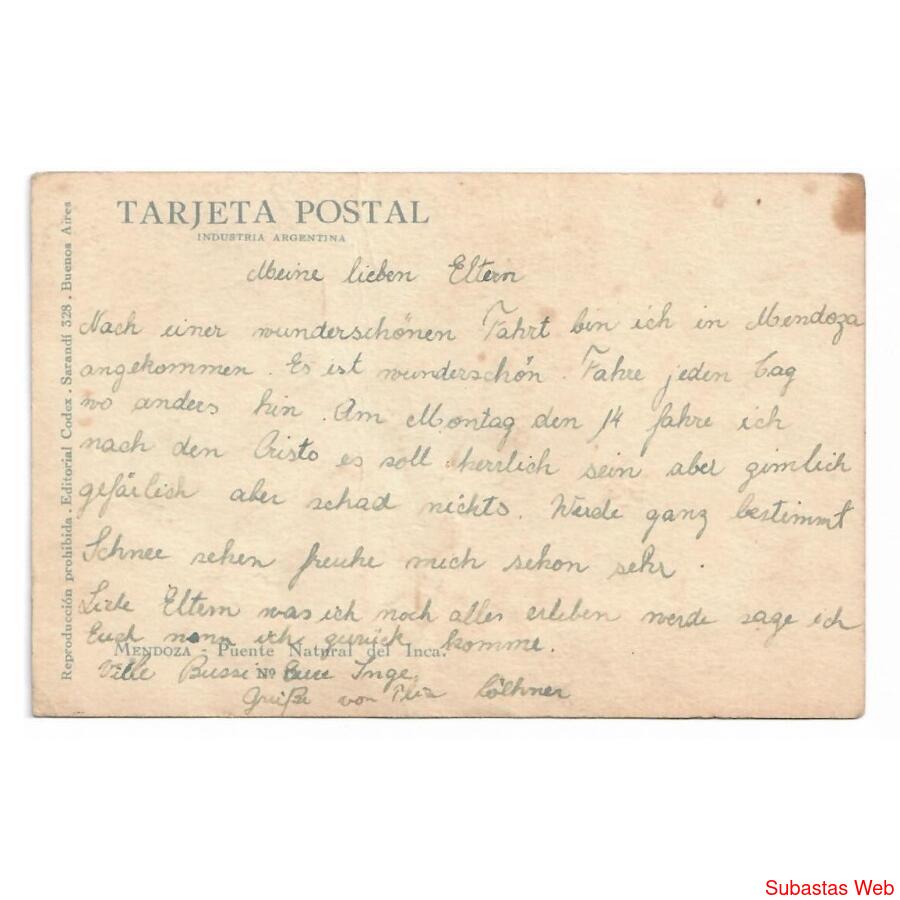 TARJETA POSTAL
INDUSTRIA ARGENTINA
Meine lieben Eltern
Nach einer wunderschönen Fahrt bin ich in Mendoza
angekommen. Es ist wunderschön. Fahre jeden Tag
wo anders hin. Am Montag den 14 fahre ich
nach den Cristo es soll herrlich sein aber zimlich
gefärlish aber schad nichts. Werde ganz bestimmt
Schnee sehen freuhe mich schon sehr.
Liebe Eltern was ich noch alles erleben werde sage ich
Euch wenn ich zurück komme.
MENDOZA - Puente Natural del Inca.
Viele Bussi Eure Inge.
Nº
Grüße von
Reproducción prohibida. Editorial Codex. Sarandí 328. Buenos Aires
Subastas Web